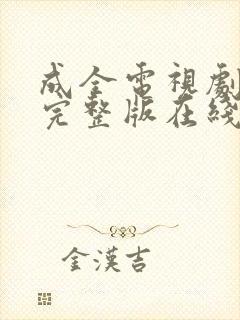 成全電視劇
完整版在綫
金漢吉